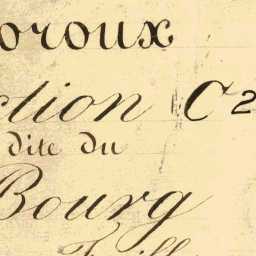 oroux
ction C2
dite du
Bourg